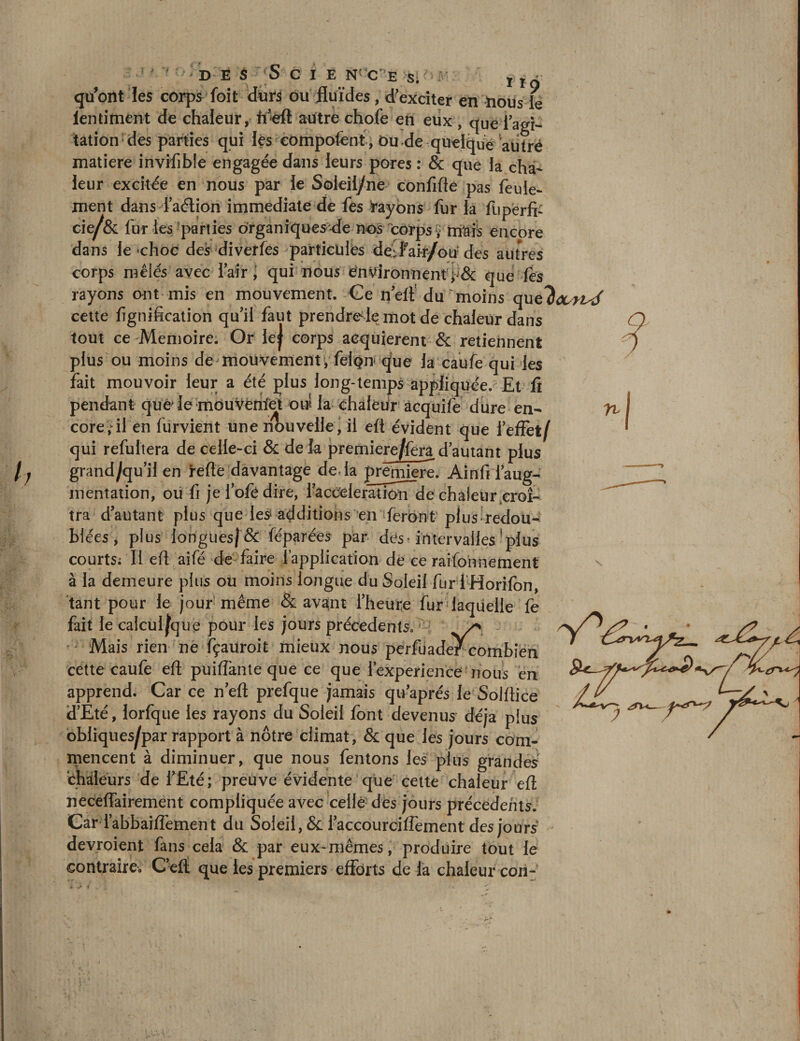 DES SCIENCES. 119
qu'ont les corps soit durs ou fluïdes, d'exciter en nous le
sentiment de chaleur, n'est autre chose en eux, que l'agi-
tation des parties qui les composent, ou de quelque autre
matiere invisible engagée dans leurs pores : & que la cha-
leur excitée en nous par le Soleil/ne consiste pas seule-
ment dans l'action immediate de ses rayons sur la superfi-
cie/& sur les parties organiques de nos corps, mais encore
dans le choc des diverses particules de l'air/ou des autres
corps mêlés avec l'air, qui nous environnent, & que ses
rayons ont mis en mouvement. Ce n'est du moins que dans
cette signification qu'il faut prendre le mot de chaleur dans
tout ce Memoire. Or les corps acquierent & retiennent
plus ou moins de mouvement, selon que la cause qui les
fait mouvoir leur a été plus long-temps appliquée. Et si
pendant que le mouvemet ou la chaleur acquise dure en- n|
core, il en survient une nouvelle, il est évident que l'effet/
qui resultera de celle-ci & de la premiere/sera d'autant plus
grand/qu'il en reste davantage de la premiere. Ainsi l'aug-
mentation, ou si je l'ose dire, l'acceleration de chaleur croî-
tra d'autant plus que les additions en seront plus redou-
blées, plus longues/& séparées par des intervalles plus
courts. Il est aisé de faire l'application de ce raisonnement
à la demeure plus ou moins longue du Soleil sur l'Horison,
tant pour le jour même & avant l'heure sur laquelle se
fait le calcul/que pour les jours précedents.
Mais rien ne sçauroit mieux nous persuader combien
cette cause est puissante que ce que l'experience nous en
apprend. Car ce n'est presque jamais qu'aprés le Solstice
d'Eté, lorsque les rayons du Soleil sont devenus déja plus
obliques/par rapport à nôtre climat, & que les jours com-
mencent à diminuer, que nous sentons les plus grandes
chaleurs de l'Eté; preuve évidente que cette chaleur est
necessairement compliquée avec celle des jours précedents.
Car l'abbaissement du Soleil, & l'accourcissement des jours
devroient sans cela & par eux-mêmes, produire tout le
contraire. C'est que les premiers efforts de la chaleur con-